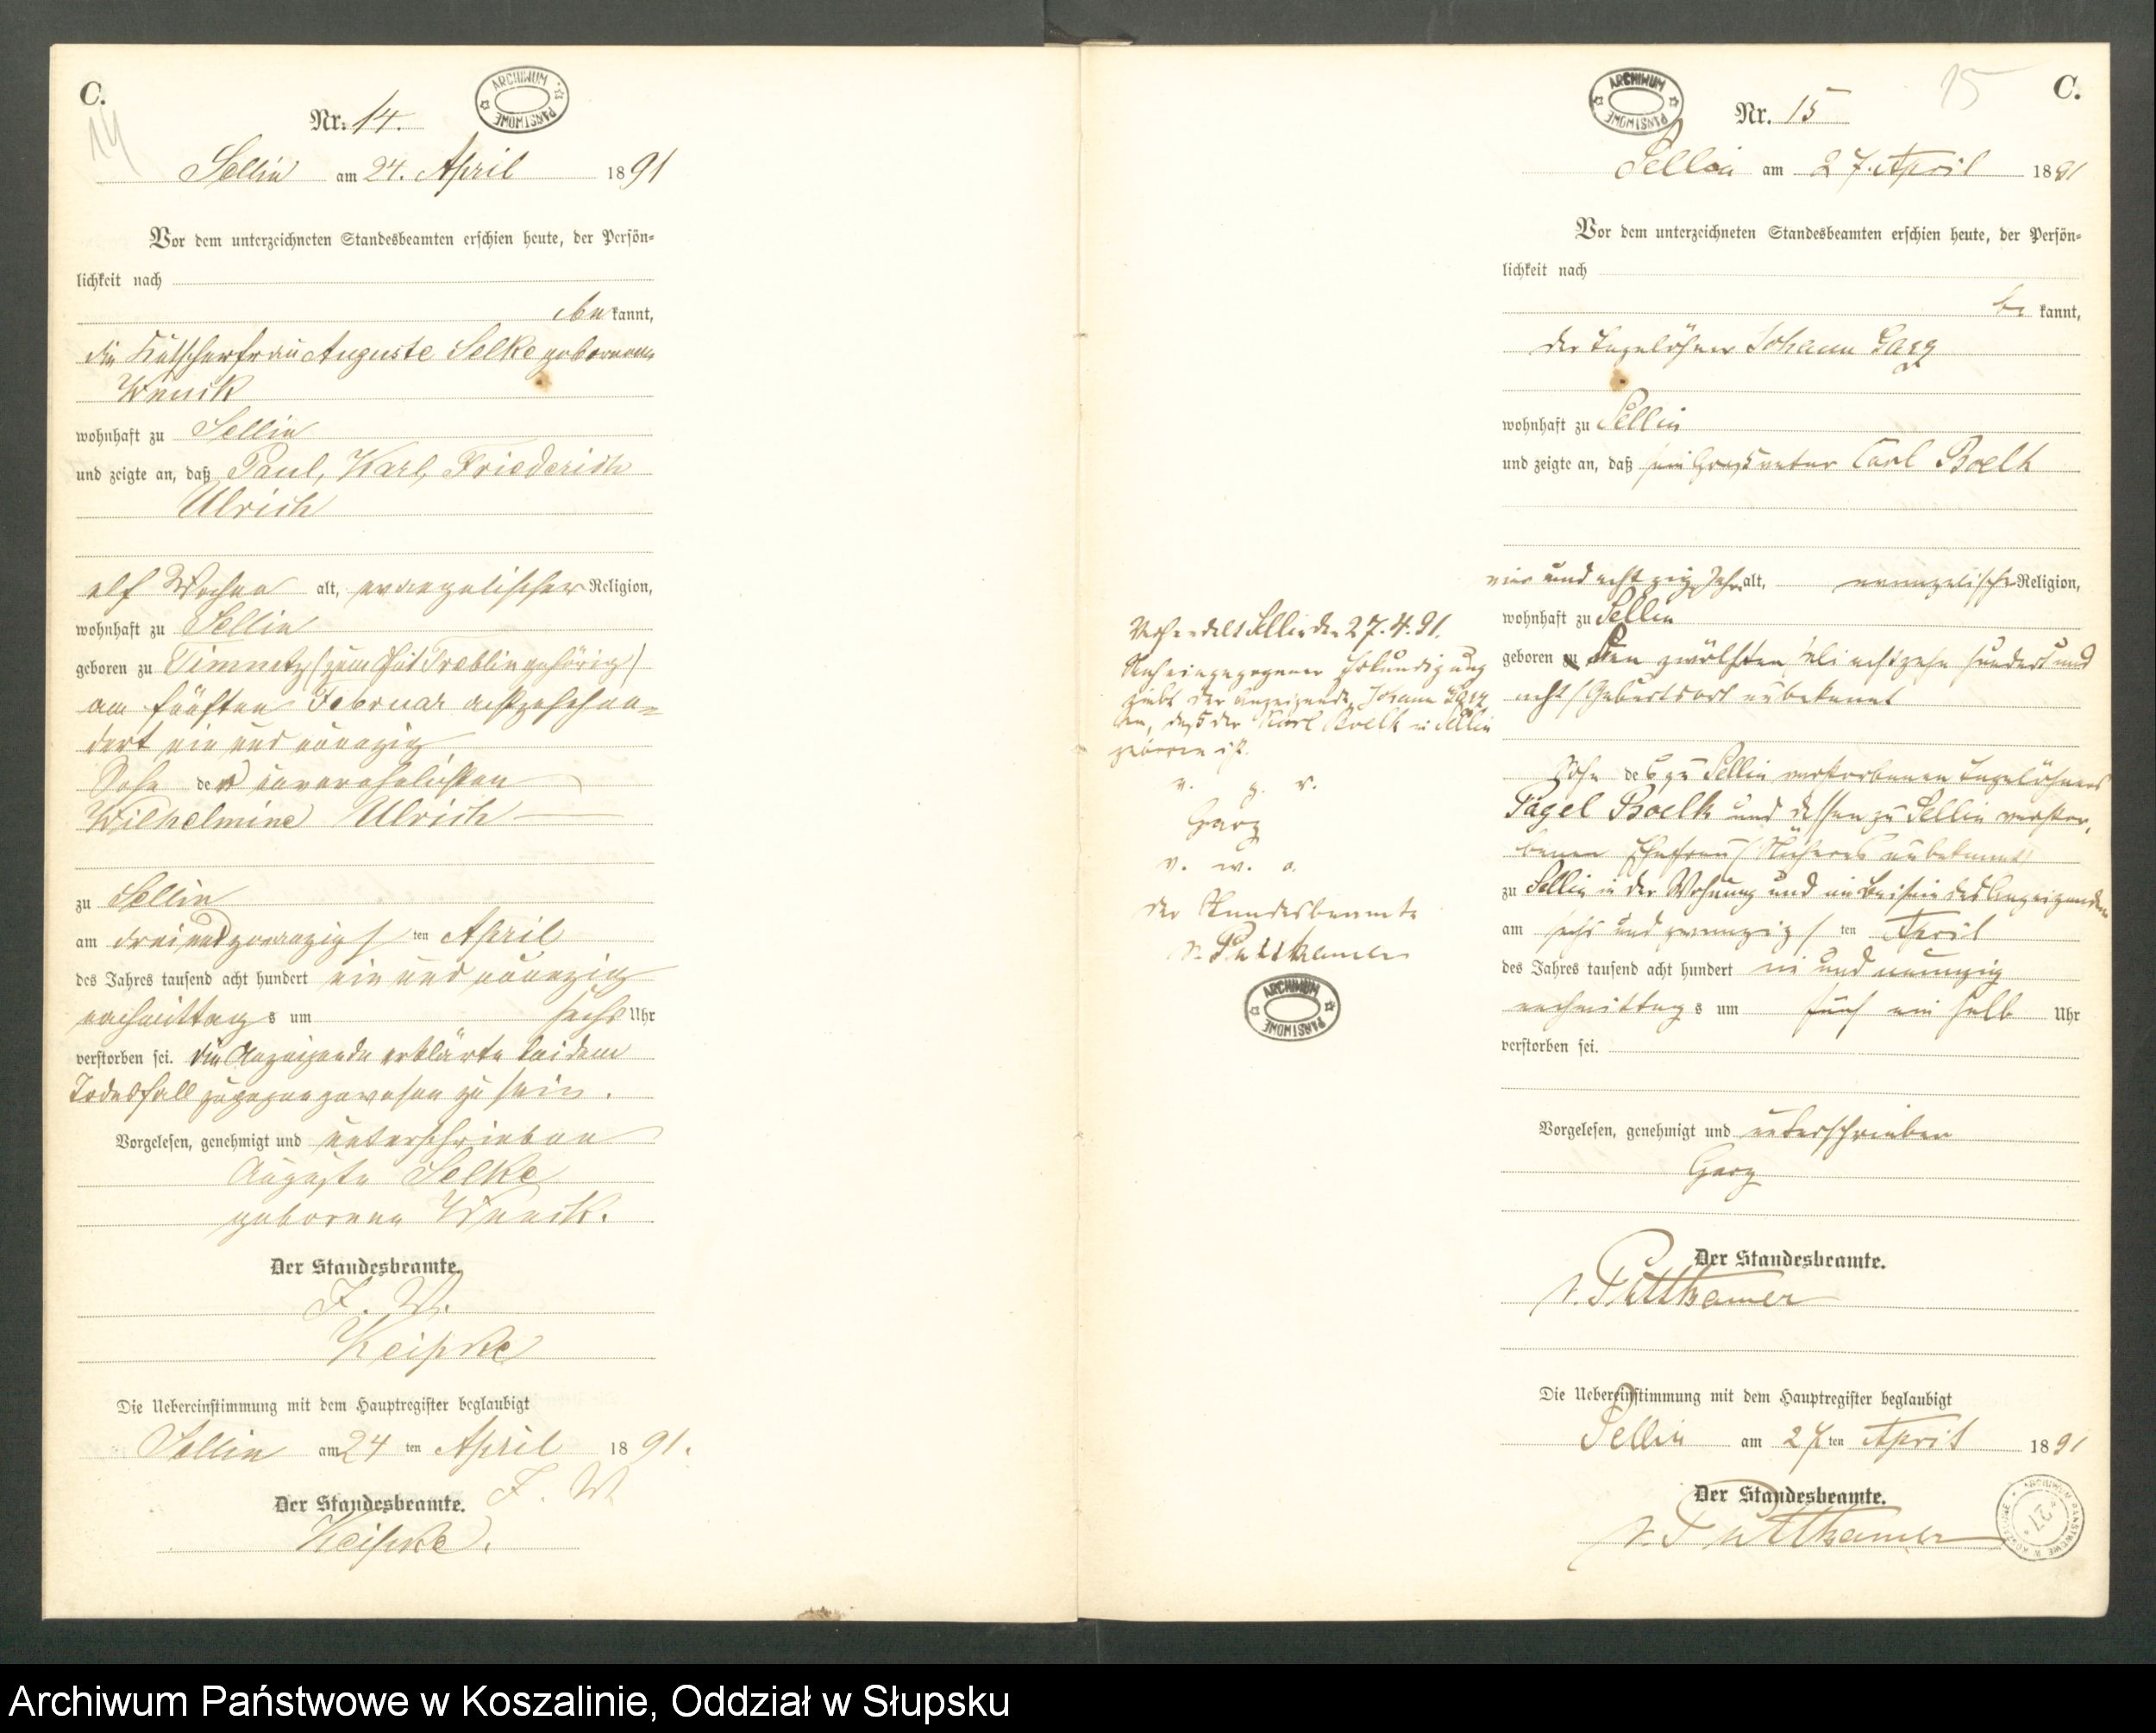 C.
14
ARCHIWUM PAŃSTWOWE
Nr. 14.
Sellin am 24. April 1891
Vor dem unterzeichneten Standesbeamten erschien heute, der Persön-
lichkeit nach
be kannt,
die Kutscherfrau Auguste Selke geborene
wohnhaft zu Sellin
und zeigte an, daß Paul, Karl, Friederich
Ulrich
elf Wochen alt, evangelischer Religion,
wohnhaft zu Sellin
geboren zu Timnetz (zum Gut Treblin gehörig)
am fünften Februar achtzehnhun-
dert ein und neunzig
Sohn der unverehelichten
Wilhelmine Ulrich
zu Sellin
am drei und zwanzig ten April
des Jahres tausend acht hundert ein und neunzig
nachmittag s um sechs Uhr
verstorben sei. Die Anzeigende erklärte bei dem
Todesfall zugegen gewesen zu sein.
Vorgelesen, genehmigt und unterschrieben
Auguste Selke
geborene
Der Standesbeamte.
Die Uebereinstimmung mit dem Hauptregister beglaubigt
Sellin am 24 ten April 1891.
Der Standesbeamte.
C.
15
ARCHIWUM PAŃSTWOWE
Nr. 15
Sellin am 27. April 1891
Vor dem unterzeichneten Standesbeamten erschien heute, der Persön-
lichkeit nach
be kannt,
der Tagelöhner Johann Garz
wohnhaft zu Sellin
und zeigte an, daß sein Grossvater Carl Boelk
vier und achtzig Jahr alt, evangelischer Religion,
wohnhaft zu Sellin
geboren zu den zwölften Juli achtzehn hundert und
acht (Geburtsort unbekannt
Sohn des zu Sellin verstorbenen Tagelöhners
Pagel Boelk und dessen zu Sellin verstor-
benen Ehefrau (Näheres unbekannt)
zu Sellin in der Wohnung und im Beisein des Anzeigenden
am sechs und zwanzig ten April
des Jahres tausend acht hundert ein und neunzig
nachmittag s um fünf ein halb Uhr
verstorben sei.
Vorgelesen, genehmigt und unterschrieben
Garz
Der Standesbeamte.
v. Puttkamer
Die Uebereinstimmung mit dem Hauptregister beglaubigt
Sellin am 27 ten April 1891
Der Standesbeamte.
v. Puttkamer
Verhandelt Sellin den 27. 4. 91.
Nach eingezogener Erkundigung
giebt der Anzeigende Johann Garz
an, daß der Karl Boelk in Sellin
geboren ist.
v. g. v.
Garz
v. w. o.
der Standesbeamte
v. Puttkamer
ARCHIWUM PAŃSTWOWE
ARCHIWUM PAŃSTWOWE W KOSZALINIE
27
Archiwum Państwowe w Koszalinie, Oddział w Słupsku